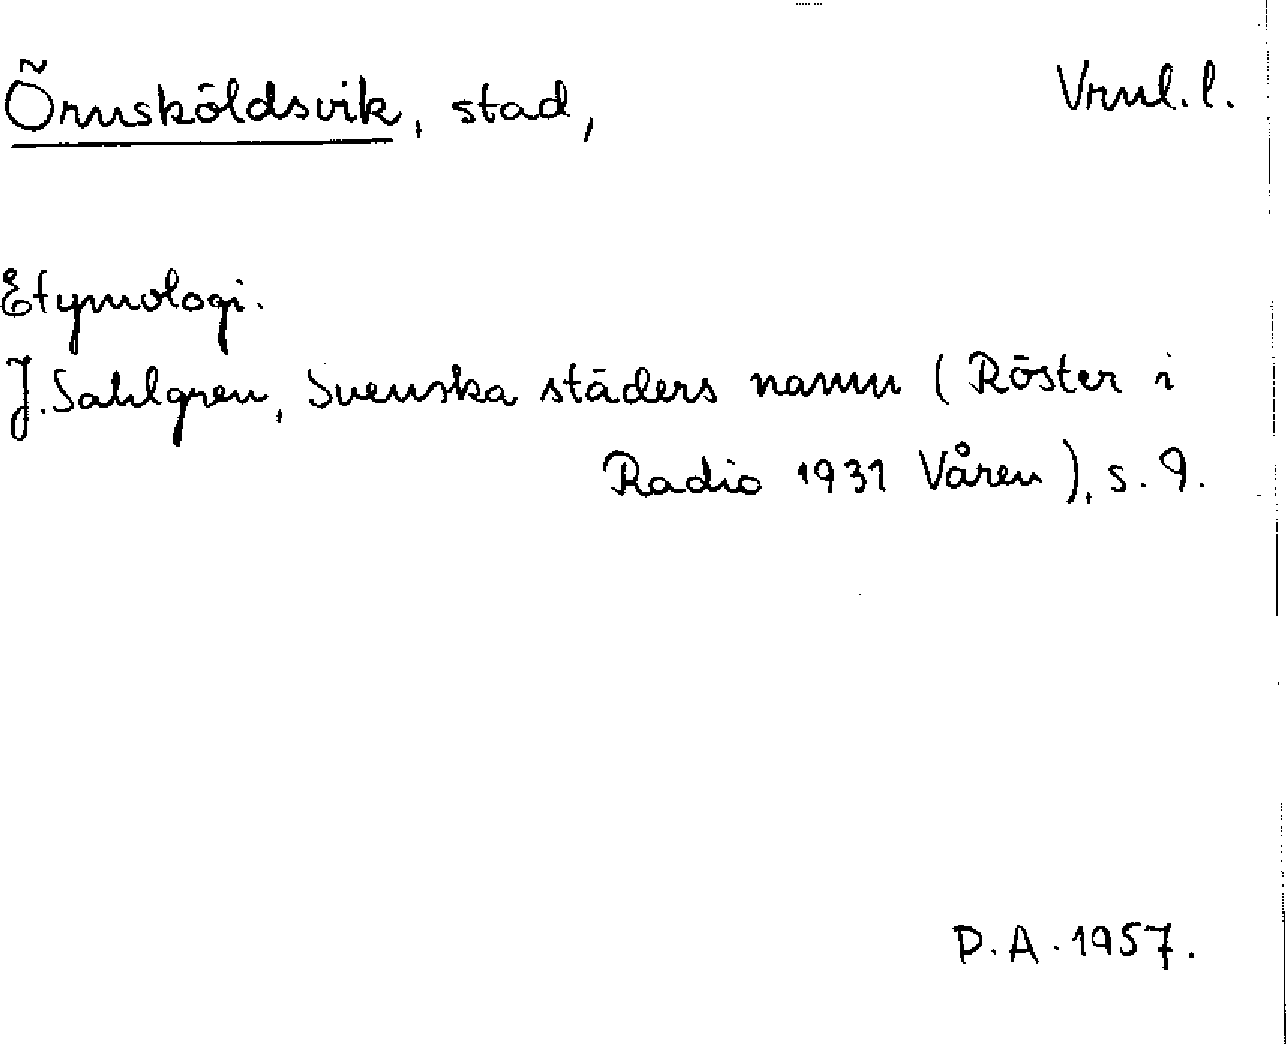 Örnsköldsvik, stad, Vrnl. l.
Etymologi.
J. Sahlgren, Svenska städers namn ( Röster i
Radio 1931 Våren ), s. 9.
P. A. 1957.